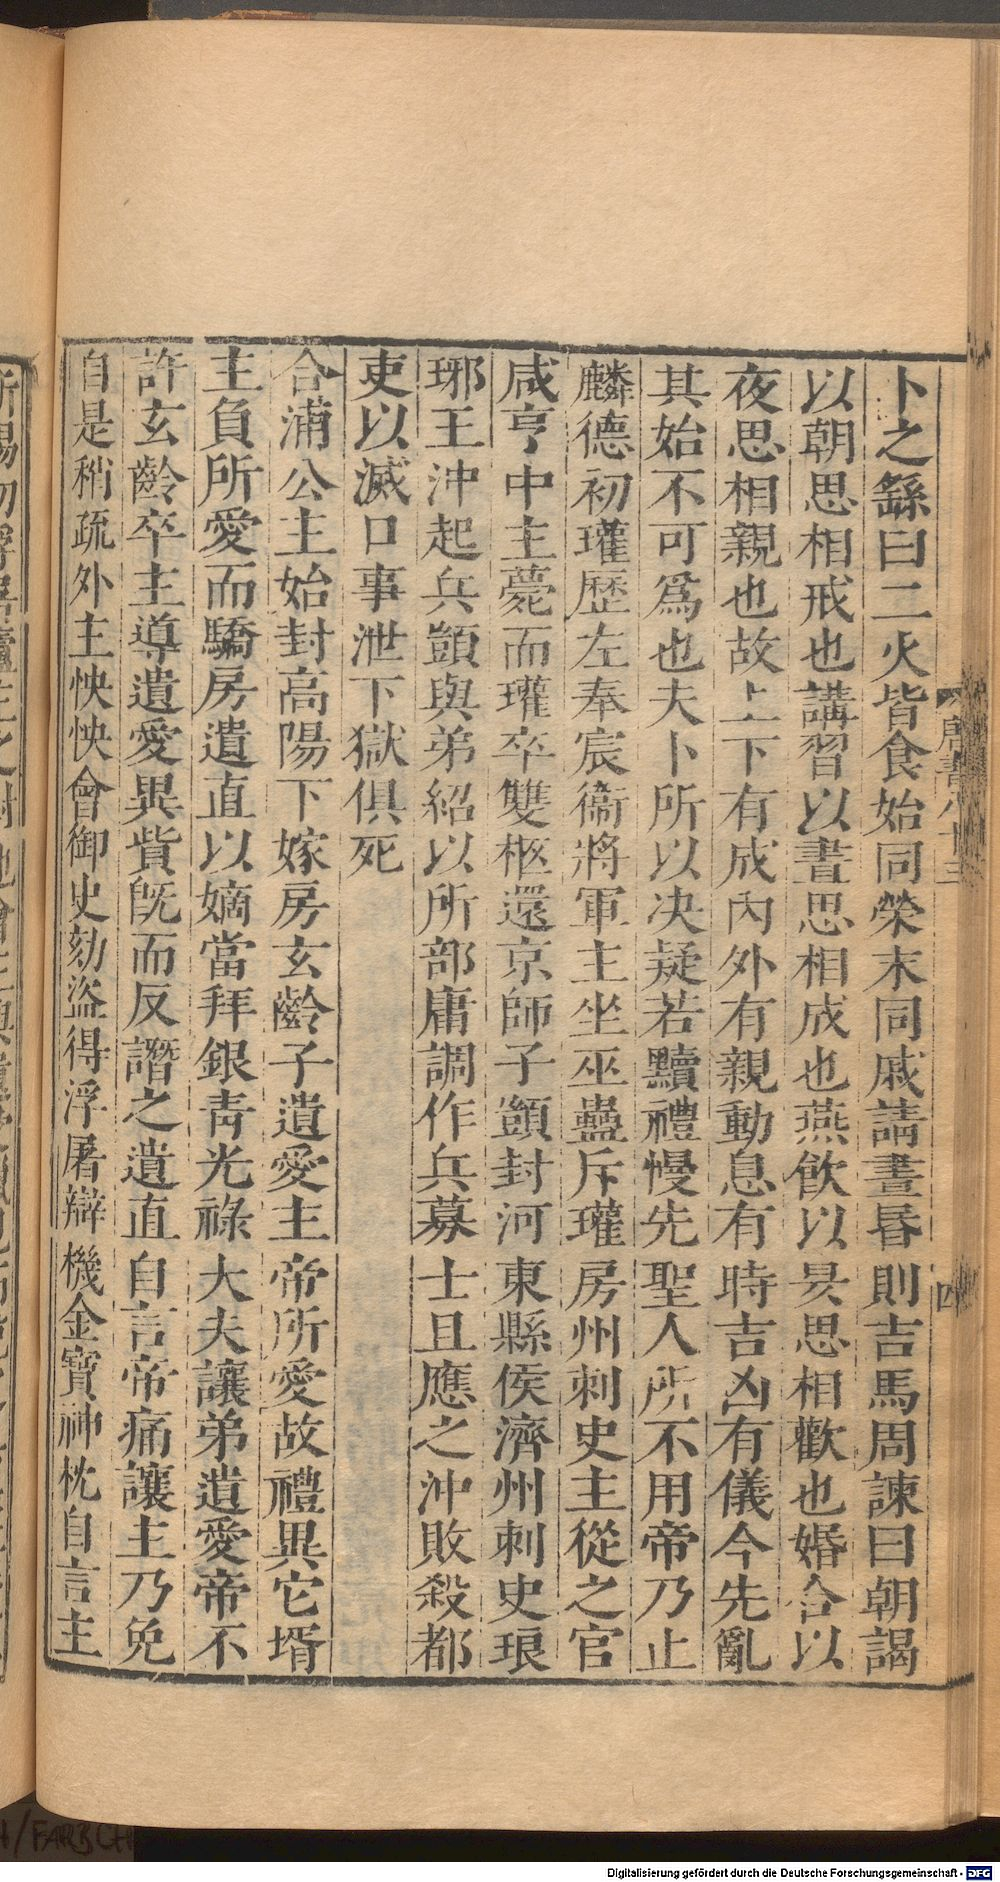 卜之繇曰二火皆食始同榮末同戚請晝昏則吉馬周諫曰朝謁
以朝思相戒也講習以晝思相成也燕飲以昃思相歡也婚合以
夜思相親也故上下有成內外有親動息有時吉凶有儀今先亂
其始不可爲也夫卜所以决疑若黷禮慢先聖人所不用帝乃止
麟德初瓘歷左奉宸衞將軍主坐巫蠱斥瓘房州刺史主從之官
咸亨中主薨而瓘卒雙柩還京師子顗封河東縣侯濟州刺史琅
琊王沖起兵顗與弟紹以所部庸調作兵募士且應之沖敗殺都
吏以滅口事泄下獄俱死
合浦公主始封高陽下嫁房玄齡子遺愛主帝所愛故禮異它壻
主負所愛而驕房遺直以嫡當拜銀青光祿大夫讓弟遺愛帝不
許玄齡卒主導遺愛異貲旣而反譖之遺直自言帝痛讓主乃免
自是稍疏外主怏怏會御史劾盜得浮屠辯機金寶神枕自言主
唐書八十三
四
Digitalisierung gefördert durch die Deutsche Forschungsgemeinschaft - DFG